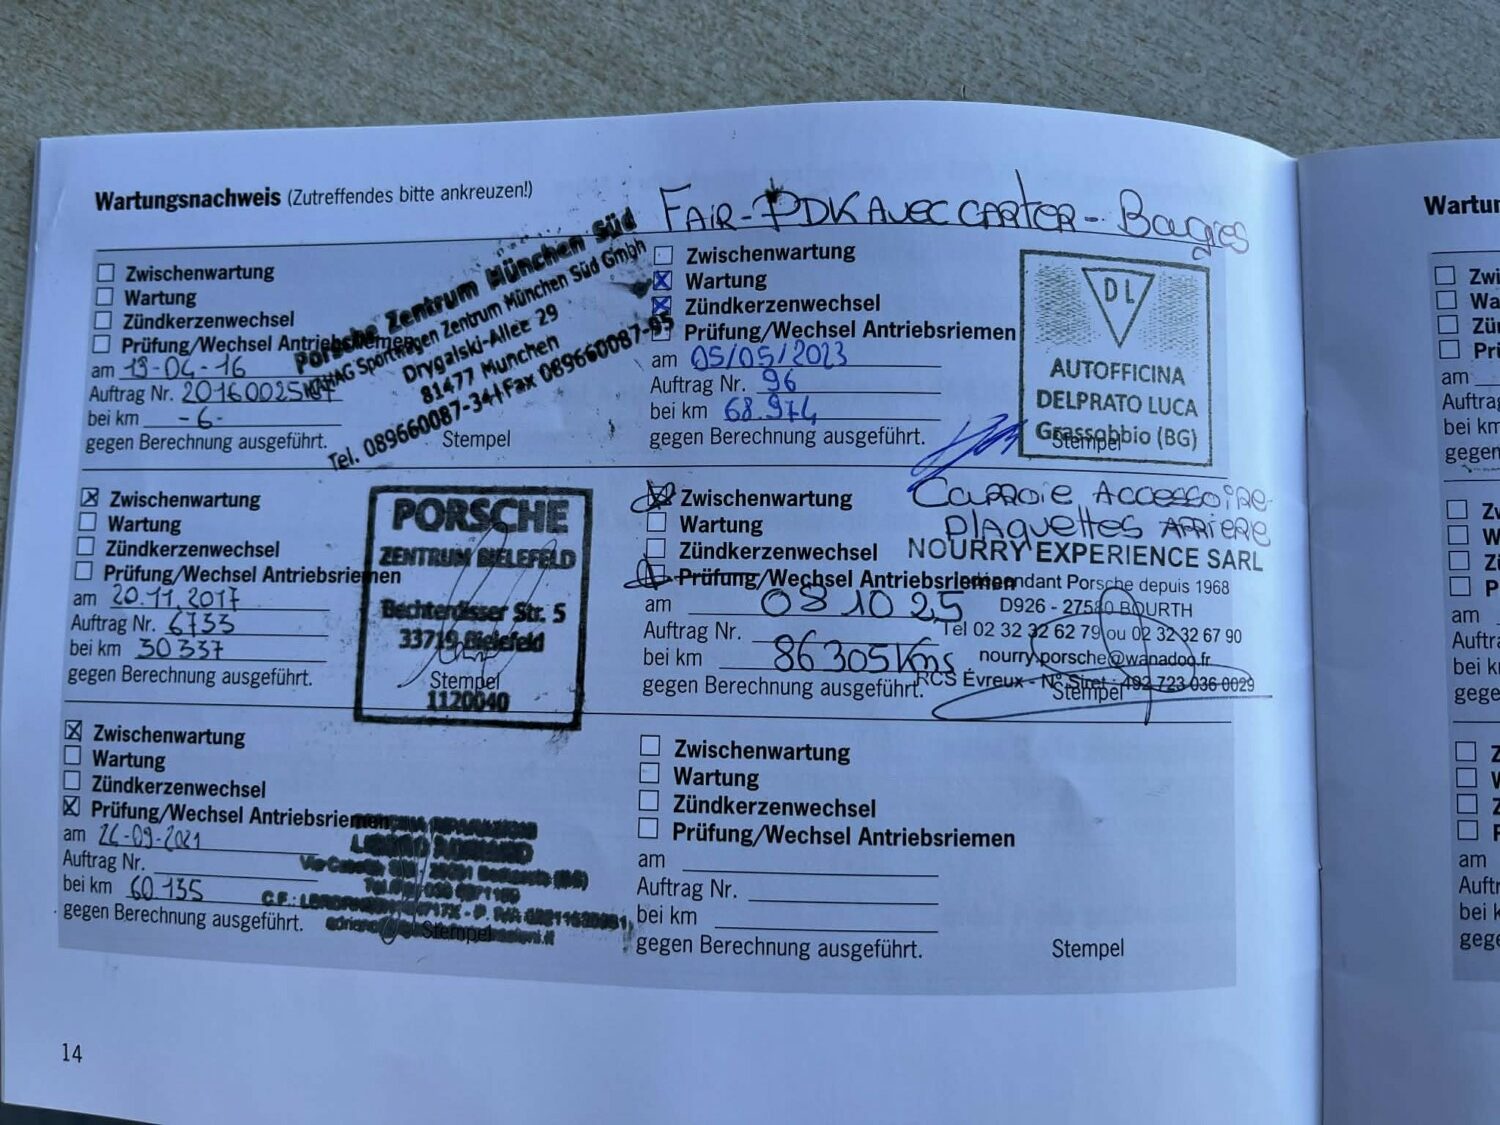 Wartungsnachweis (Zutreffendes bitte ankreuzen!)
Zwischenwartung
Wartung
Zündkerzenwechsel
Prüfung/Wechsel Antriebsriemen
am 13-04-16
Auftrag Nr.
bei km -6-
gegen Berechnung ausgeführt.
Stempel
Porsche Zentrum München Süd
MAHAG Sportwagen Zentrum München Süd GmbH
Drygalski-Allee 29
81477 München
Tel. 089660087-34 Fax 089660087-95
Zwischenwartung
Wartung
Zündkerzenwechsel
Prüfung/Wechsel Antriebsriemen
am 20.11.2017
Auftrag Nr. 6733
bei km 30337
gegen Berechnung ausgeführt.
PORSCHE
ZENTRUM BIELEFELD
Bechterdisser Str. 5
33719 Bielefeld
Stempel
1120040
Zwischenwartung
Wartung
Zündkerzenwechsel
Prüfung/Wechsel Antriebsriemen
am 26-09-2021
Auftrag Nr.
bei km 60.135
gegen Berechnung ausgeführt.
Stempel
FAIR-PDK AVEC CARTER - Bougies
Zwischenwartung
Wartung
Zündkerzenwechsel
Prüfung/Wechsel Antriebsriemen
am 05/05/2023
Auftrag Nr. 96
bei km 68.974
gegen Berechnung ausgeführt.
DL
AUTOFFICINA
DELPRATO LUCA
Grassobbio (BG)
Stempel
Courroie ACCESSOIRE
PLAQUETTES ARRIERE
Zwischenwartung
Wartung
Zündkerzenwechsel
Prüfung/Wechsel Antriebsriemen
am 08 10 25
Auftrag Nr.
bei km 86305 Kms
gegen Berechnung ausgeführt.
NOURRY EXPERIENCE SARL
Indépendant Porsche depuis 1968
D926 - 27580 BOURTH
Tél 02 32 32 62 79 ou 02 32 32 67 90
nourry.porsche@wanadoo.fr
RCS Évreux - N° Siret : 492 723 036 0029
Stempel
Zwischenwartung
Wartung
Zündkerzenwechsel
Prüfung/Wechsel Antriebsriemen
am
Auftrag Nr.
bei km
gegen Berechnung ausgeführt.
Stempel
14